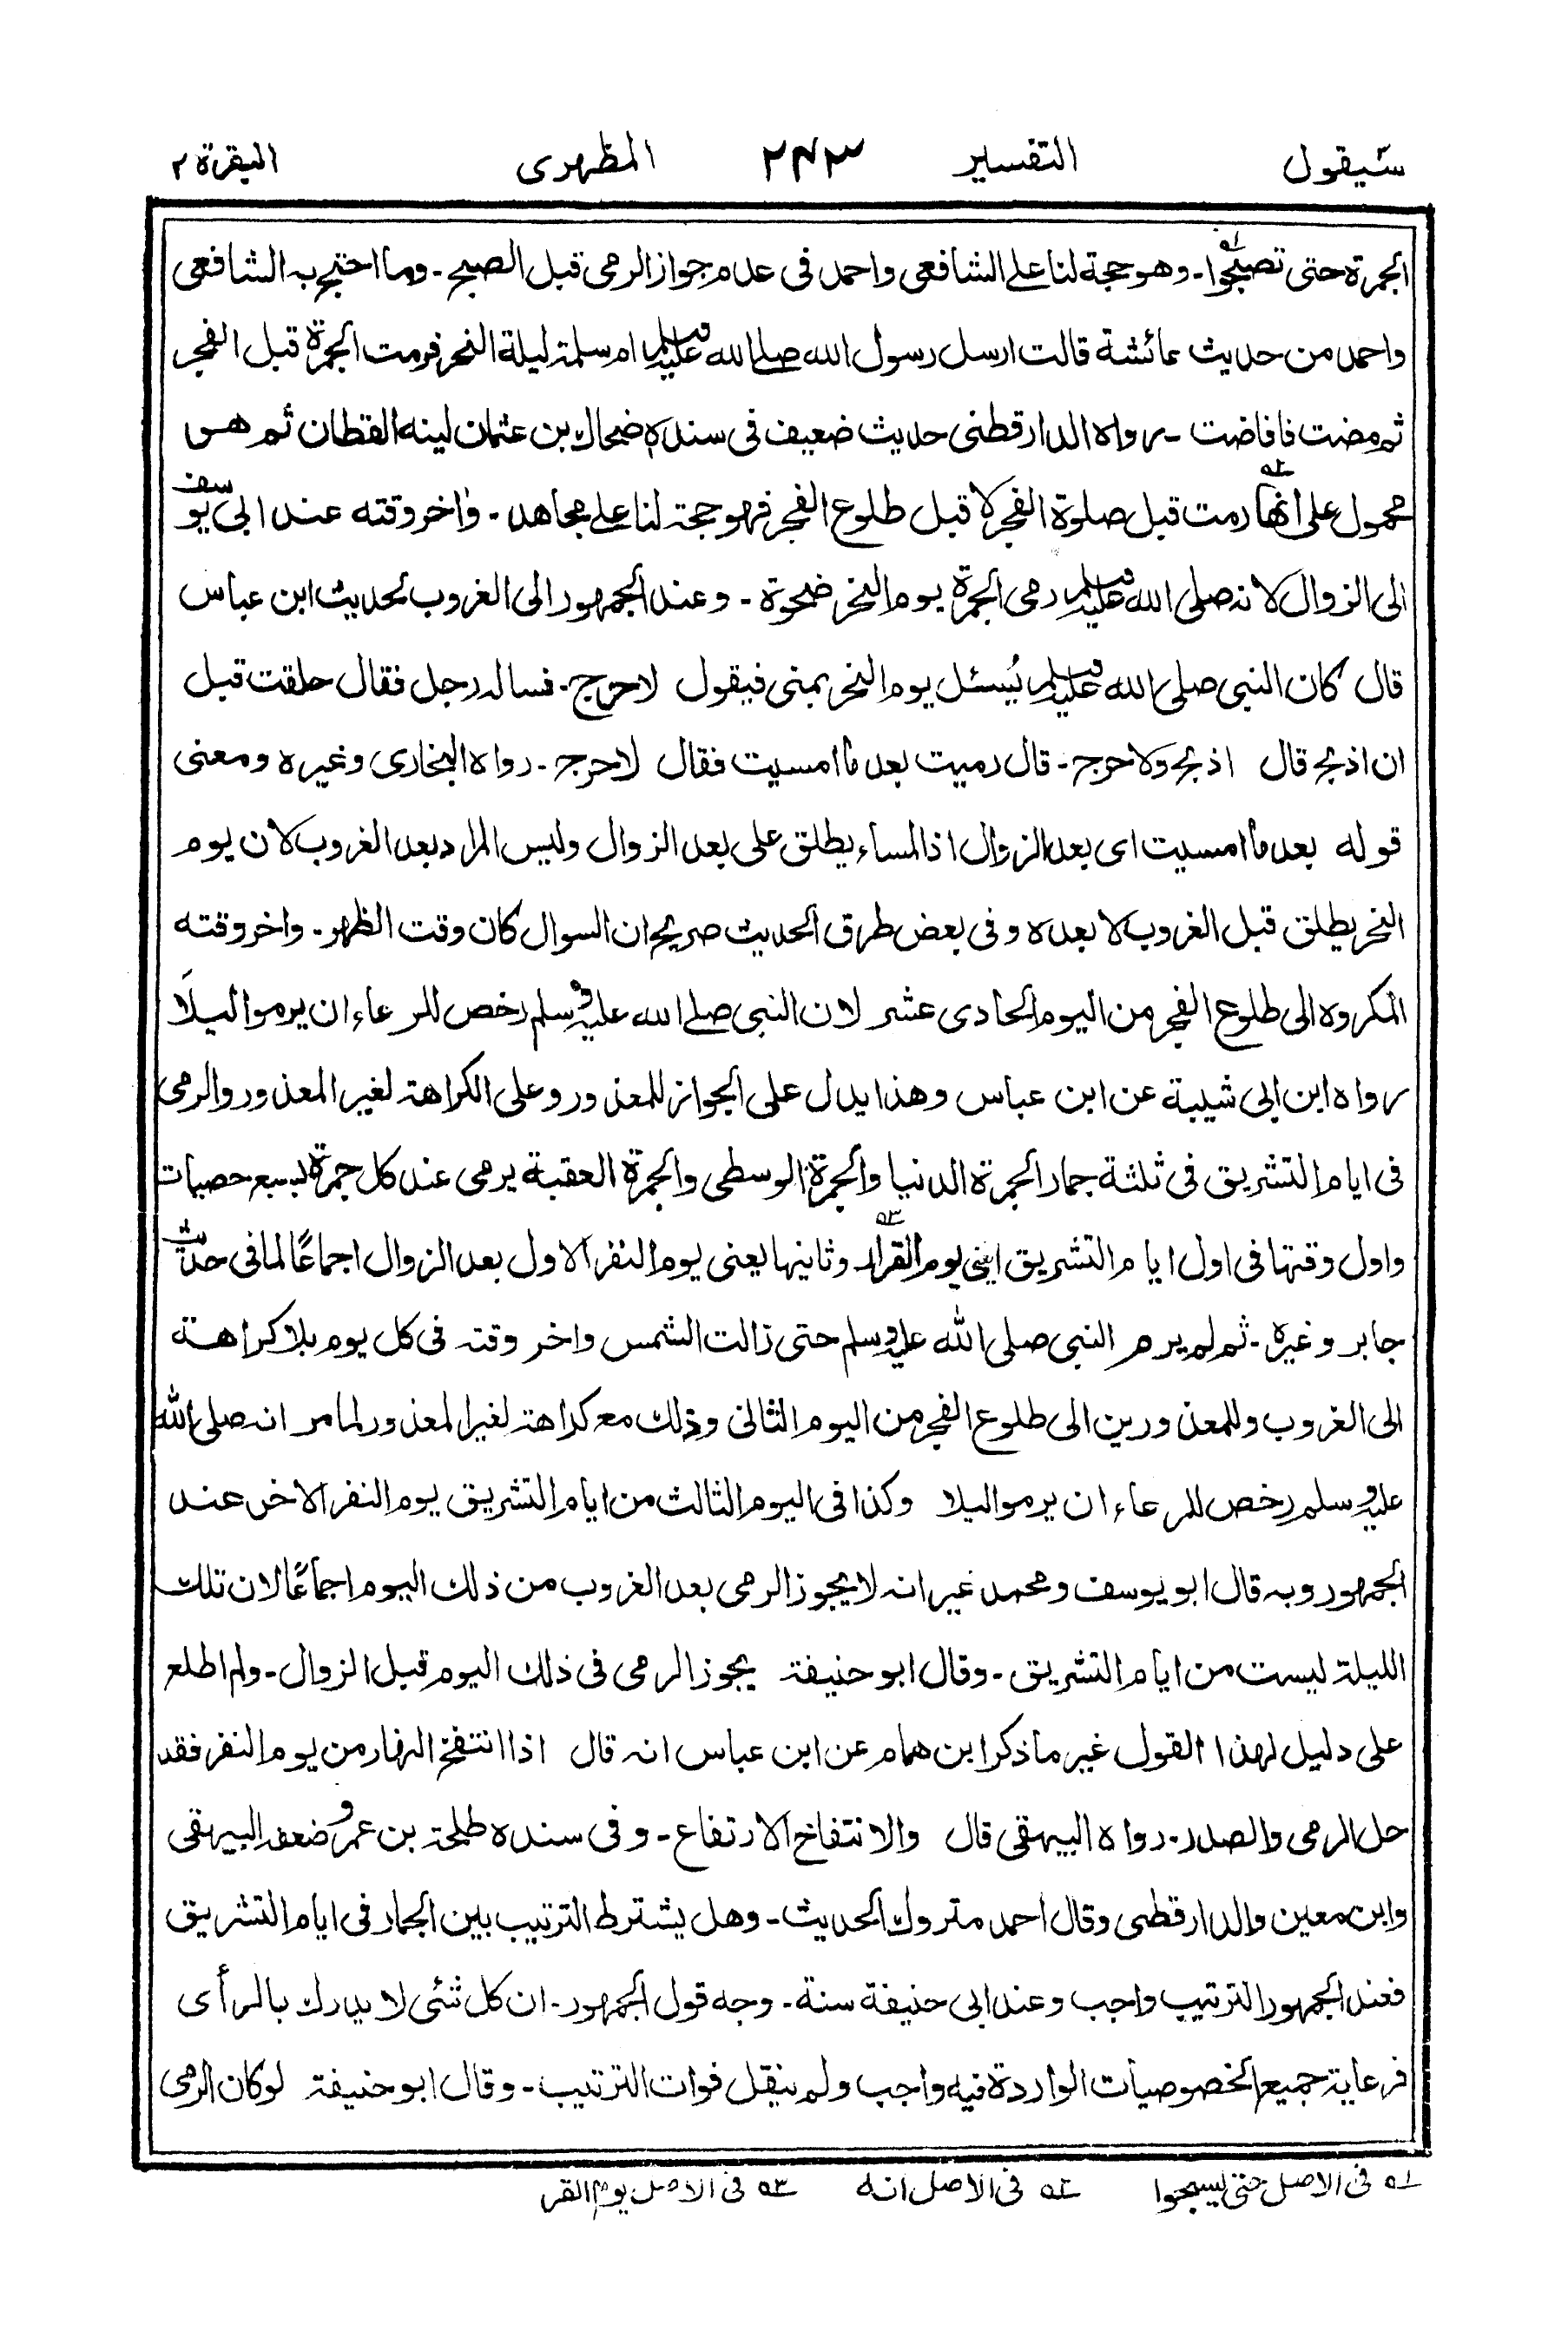 سَيقول التفسير ۲۴۳ المظهرى البقرة ۲
الجمرة حتى تصبحوا ۱ـ وهو حجة لنا على الشافعى واحمد فى عدم جواز الرمى قبل الصبح ـ وما احتج به الشافعى
واحمد من حديث عائشة قالت ارسل رسول الله صلى الله عليه وسلم ام سلمة ليلة النحر فرمت الجمرة قبل الفجر
ثم مضت فافاضت ـ رواه الدارقطنى حديث ضعيف فى سنده ضحاك بن عثمان لينه القطان ثم هو
محمول على انها ۲ رمت قبل صلوة الفجر لا قبل طلوع الفجر فهو حجة لنا على مجاهد ـ واخر وقته عند ابى يوسف
الى الزوال لانه صلى الله عليه وسلم رمى الجمرة يوم النحر ضحوة ـ وعند الجمهور الى الغروب لحديث ابن عباس
قال كان النبى صلى الله عليه وسلم يُسئل يوم النحر بمنى فيقول لا حرج ـ فساله رجل فقال حلقت قبل
ان اذبح قال اذبح ولا حرج ـ قال رميت بعد ما امسيت فقال لا حرج ـ رواه البخارى وغيره ومعنى
قوله بعد ما امسيت اى بعد الزوال اذ المساء يطلق على بعد الزوال وليس المراد بعد الغروب لان يوم
النحر يطلق قبل الغروب لا بعده وفى بعض طرق الحديث صريح ان السوال كان وقت الظهر ـ واخر وقته
المكروه الى طلوع الفجر من اليوم الحادى عشر لان النبى صلى الله عليه وسلم رخص للرعاء ان يرموا ليلًا
رواه ابن ابى شيبة عن ابن عباس وهذا يدل على الجواز للمعذور وعلى الكراهة لغير المعذور والرمى
فى ايام التشريق فى ثلثة جمار الجمرة الدنيا والجمرة الوسطى والجمرة العقبة يرمى عند كل جمرة بسبع حصيات
واول وقتها فى اول ايام التشريق اعنى يوم القراد ۳ وثانيها يعنى يوم النفر الاول بعد الزوال اجماعًا لما فى حديث
جابر وغيره ـ ثم لم يرم النبى صلى الله عليه وسلم حتى زالت الشمس واخر وقته فى كل يوم بلا كراهة
الى الغروب وللمعذورين الى طلوع الفجر من اليوم الثانى وذلك مع كراهة لغير المعذور لما مر انه صلى الله
عليه وسلم رخص للرعاء ان يرموا ليلا وكذا فى اليوم الثالث من ايام التشريق يوم النفر الاخر عند
الجمهور وبه قال ابو يوسف ومحمد غير انه لا يجوز الرمى بعد الغروب من ذلك اليوم اجماعًا لان تلك
الليلة ليست من ايام التشريق ـ وقال ابو حنيفة يجوز الرمى فى ذلك اليوم قبل الزوال ـ ولم اطلع
على دليل لهذا القول غير ما ذكر ابن همام عن ابن عباس انه قال اذا انتفخ النهار من يوم النفر فقد
حل الرمى والصدر ـ رواه البيهقى قال والانتفاخ الارتفاع ـ وفى سنده طلحة بن عمرو ضعفه البيهقى
وابن معين والدارقطى وقال احمد متروك الحديث ـ وهل يشترط الترتيب بين الجمار فى ايام التشريق
فعند الجمهور الترتيب واجب وعند ابى حنيفة سنة ـ وجه قول الجمهور ـ ان كل شئى لا يدرك بالرأى
فرعاية جميع الخصوصيات الواردة فيه واجب ولم ينقل فوات الترتيب ـ وقال ابو حنيفة لو كان الرمى
۱ فى الاصل حتى ليسبحوا ۲ فى الاصل انه ۳ فى الاصل يوم القر